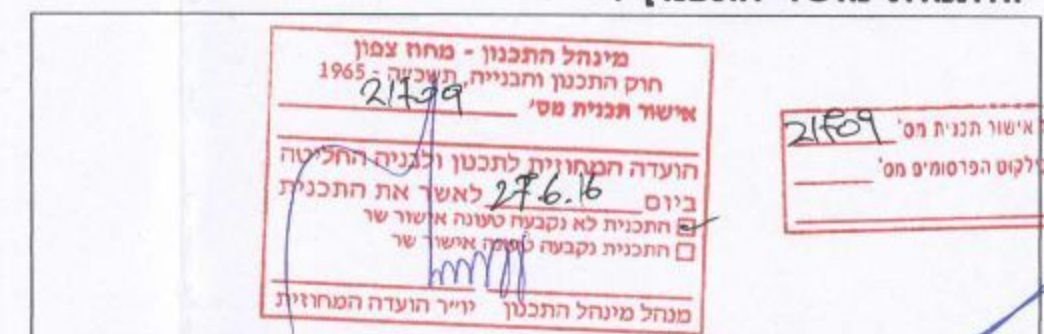 מינהל התכנון - מחוז צפון
חוק התכנון והבנייה, תשכ"ה - 1965
אישור תכנית מס' 21709
הועדה המחוזית לתכנון ולבניה החליטה
ביום 27.6.16 לאשר את התכנית
התכנית לא נקבעה טעונה אישור שר
התכנית נקבעה טעונה אישור שר
מנהל מינהל התכנון יו"ר הועדה המחוזית
אישור תכנית מס' 21709
ילקוט הפרסומים מס'